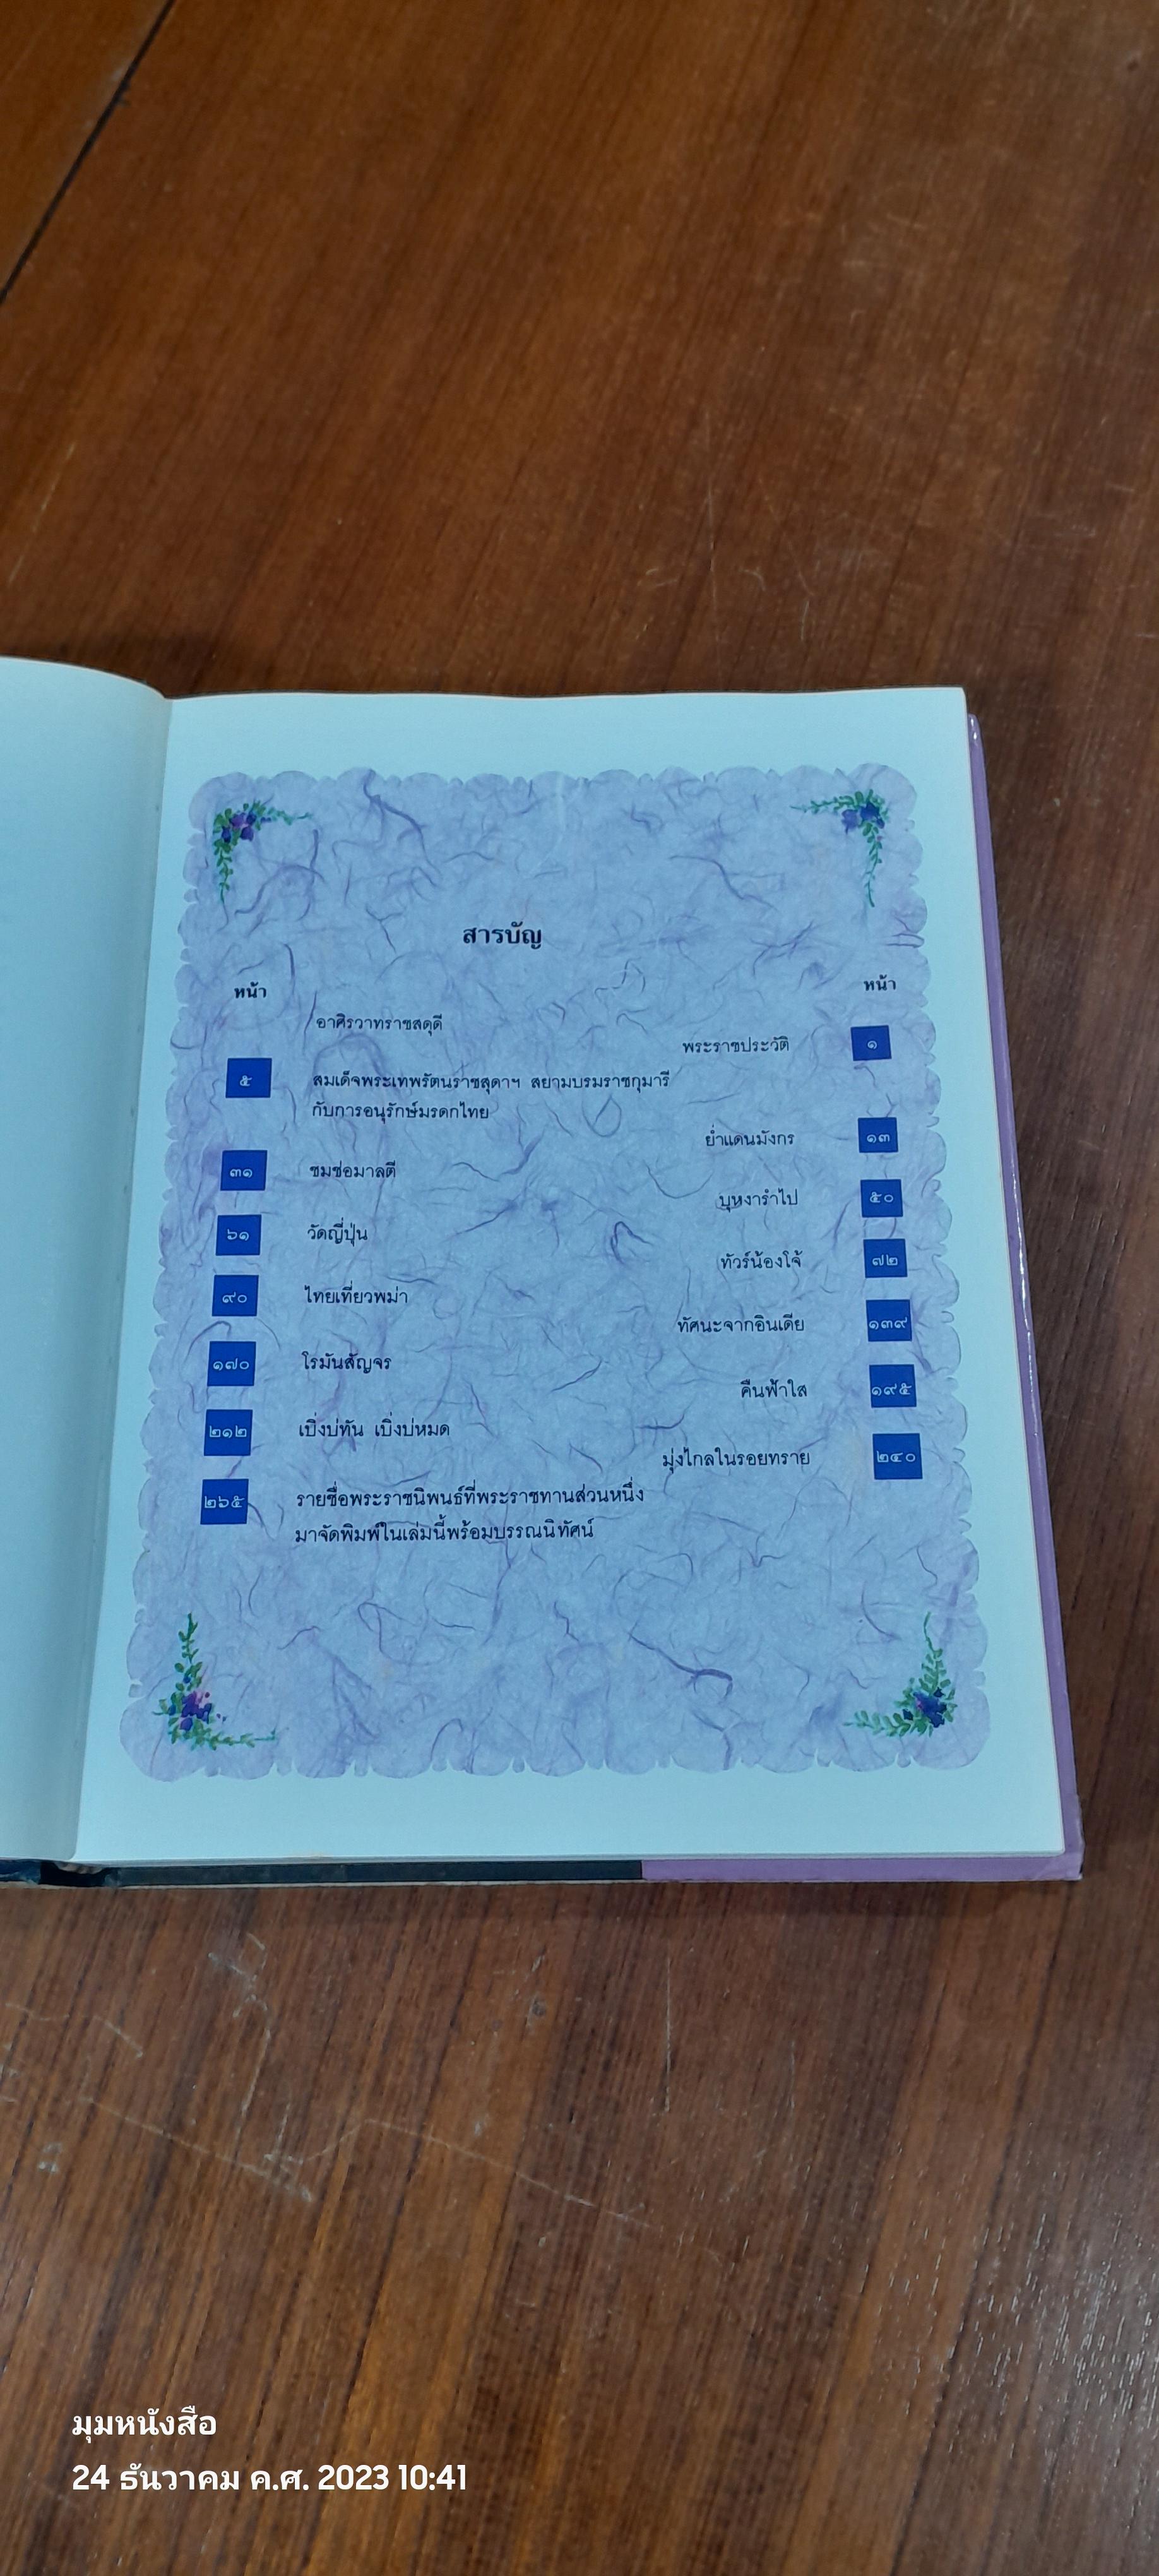 สารบัญ
หน้า
หน้า
อาศิรวาทราชสดุดี
พระราชประวัติ ๑
๕ สมเด็จพระเทพรัตนราชสุดาฯ สยามบรมราชกุมารี
กับการอนุรักษ์มรดกไทย
ย่ำแดนมังกร ๑๓
๓๑ ชมช่อมาลตี
บุหงารำไป ๕๐
๖๑ วัดญี่ปุ่น
ทัวร์น้องโจ้ ๗๒
๙๐ ไทยเที่ยวพม่า
ทัศนะจากอินเดีย ๑๓๙
๑๗๐ โรมันสัญจร
คืนฟ้าใส ๑๙๕
๒๑๒ เบิ่งบ่ทัน เบิ่งบ่หมด
มุ่งไกลในรอยทราย ๒๔๐
๒๖๕ รายชื่อพระราชนิพนธ์ที่พระราชทานส่วนหนึ่ง
มาจัดพิมพ์ในเล่มนี้พร้อมบรรณนิทัศน์
มุมหนังสือ
24 ธันวาคม ค.ศ. 2023 10:41